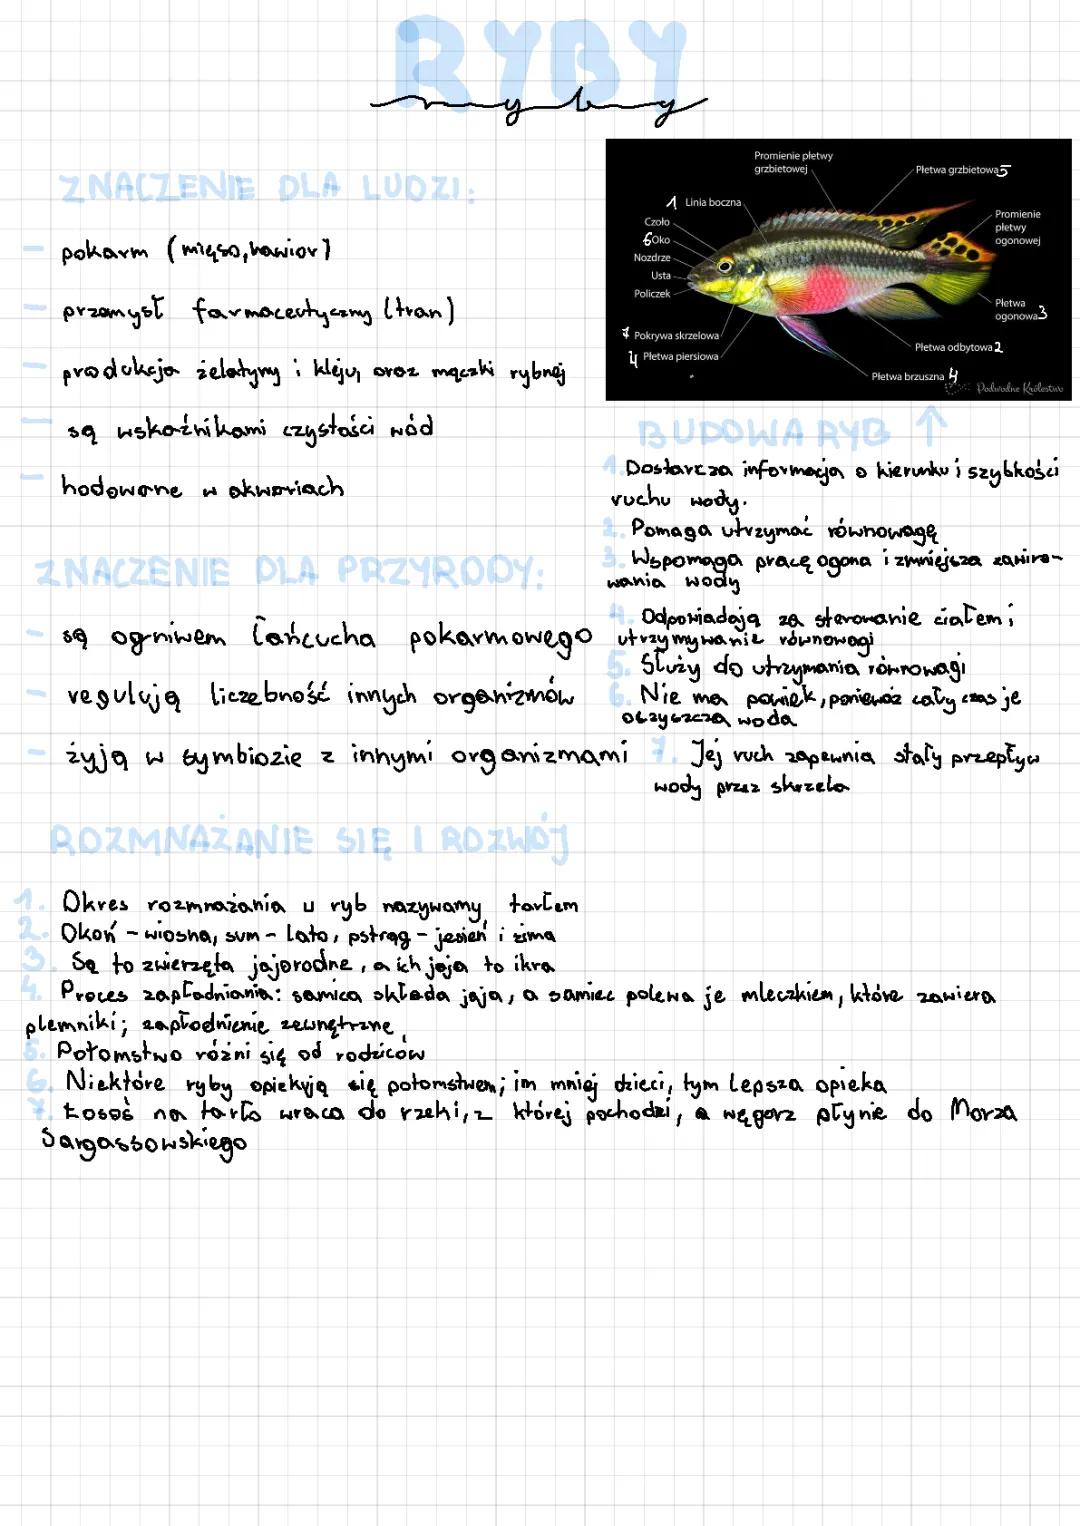 RYBY
ryby
ZNACZENIE DLA LUDZI:
- pokarm (mięso, kawior)
- przemysł farmaceutyczny (tran)
- produkcja żelatyny i kleju, oraz mączki rybnej
- są wskaźnikami czystości wód
- hodowane w akwariach
ZNACZENIE DLA PRZYRODY:
- są ogniwem łańcucha pokarmowego
- regulują liczebność innych organizmów
- żyją w symbiozie z innymi organizmami
Promienie płetwy
grzbietowej
Płetwa grzbietowa 5
1 Linia boczna
Czoło
6 Oko
Nozdrze
Usta
Policzek
7 Pokrywa skrzelowa
4 Płetwa piersiowa
Promienie
płetwy
ogonowej
Płetwa
ogonowa 3
Płetwa odbytowa 2
Płetwa brzuszna 4
Podwodne Królestwo
BUDOWA RYB ↑
1. Dostarcza informacja o kierunku i szybkości
ruchu wody.
2. Pomaga utrzymać równowagę
3. Wspomaga pracę ogona i zmniejsza zawiro-
wania wody
4. Odpowiadają za sterowanie ciałem i
utrzymywanie równowagi
5. Służy do utrzymania równowagi
6. Nie ma powiek, ponieważ cały czas je
obzyszcza woda
7. Jej ruch zapewnia stały przepływ
wody przez skrzela
ROZMNAŻANIE SIĘ I ROZWÓJ
1. Okres rozmnażania u ryb nazywamy tarłem
2. Okoń - wiosna, sum - lato, pstrąg - jesień i zima
3. Są to zwierzęta jajorodne, a ich jaja to ikra
4. Proces zapładniania: samica składa jaja, a samiec polewa je mleczkiem, które zawiera
plemniki; zapłodnienie zewnętrzne
5. Potomstwo różni się od rodziców
6. Niektóre ryby opiekują się potomstwem; im mniej dzieci, tym lepsza opieka
7. Łosoś na tarło wraca do rzeki, z której pochodzi, a węgorz płynie do Morza
Sargassowskiego